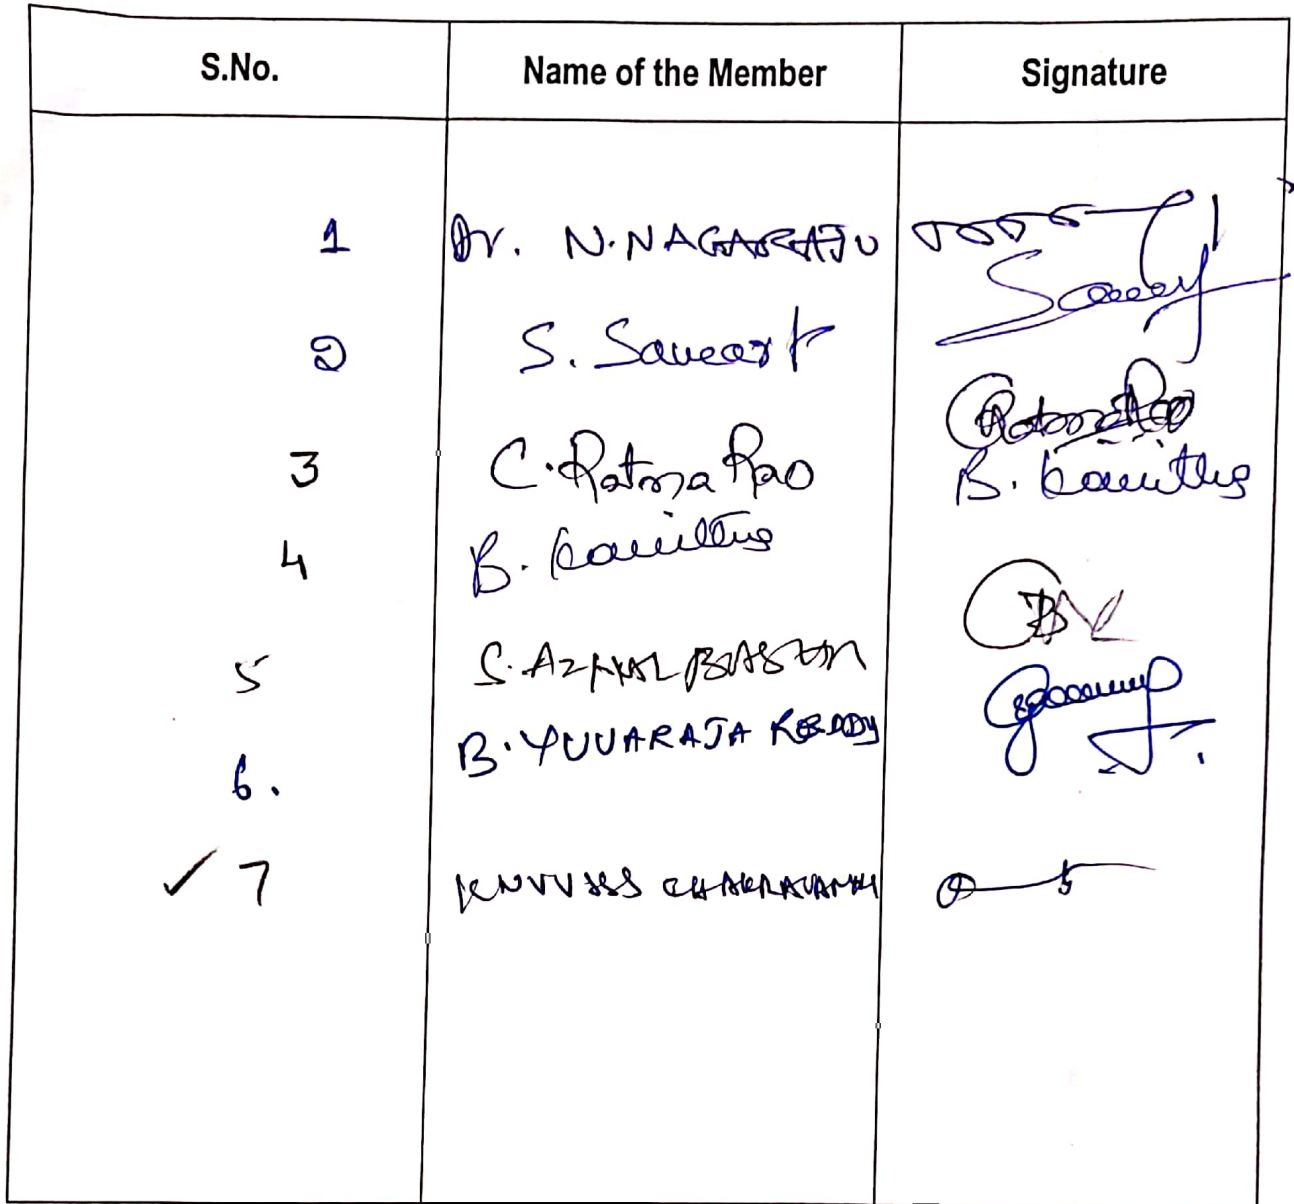 S.No. Name of the Member Signature
1 Dr. N. NAGARAJU
2 S.
3 C. Ratna Rao
4 B. Kavitha B. Kavitha
5 S. BASHA
6. B. YUVARAJA REDDY
7 KNVVSSS CHAKRAVARTHY